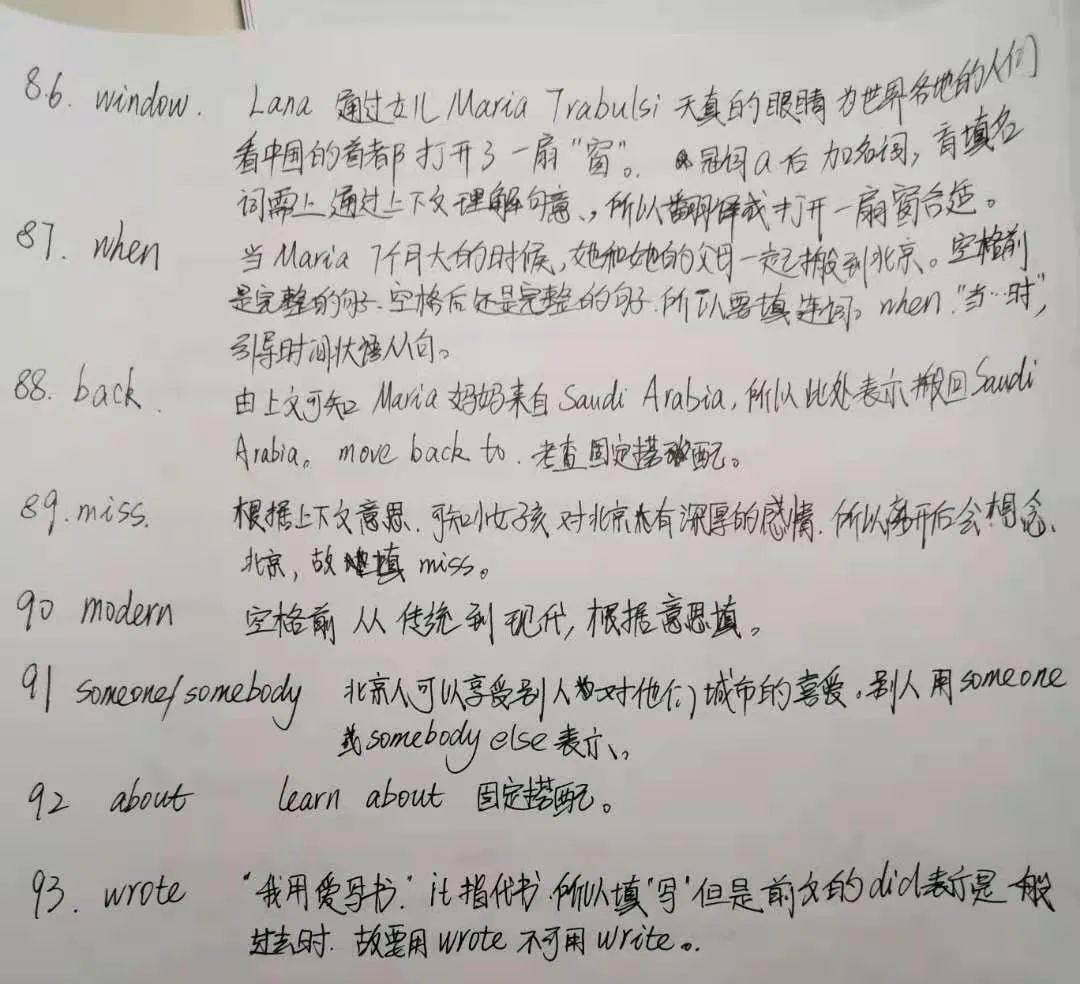 86. window. Lana 通过女儿 Maria Trabulsi 天真的眼睛为世界各地的人们
看中国的首都打开了一扇“窗”。 冠词a后加名词,盲填名
词需上通过上下文理解句意、,所以翻译成打开一扇窗合适。
87. when 当 Maria 7个月大的时候,她和她的父母一起搬到北京。空格前
是完整的句子.空格后还是完整的句子.所以要填连词。when“当…时”,
引导时间状语从句。
88. back. 由上文可知 Maria 妈妈来自 Saudi Arabia,所以此处表示搬回Saudi
Arabia。move back to. 考查固定搭配。
89. miss. 根据上下文意思.可知小女孩对北京有深厚的感情.所以离开后会想念
北京,故填 miss。
90 modern 空格前 从传统到现代,根据意思填。
91 someone/somebody 北京人可以享受别人对他们城市的喜爱。别人用someone
或somebody else表示、。
92 about learn about 固定搭配。
93. wrote “我用爱写书.” it指代书.所以填“写”但是前文的did表示是一般
过去时.故要用wrote不可用write。